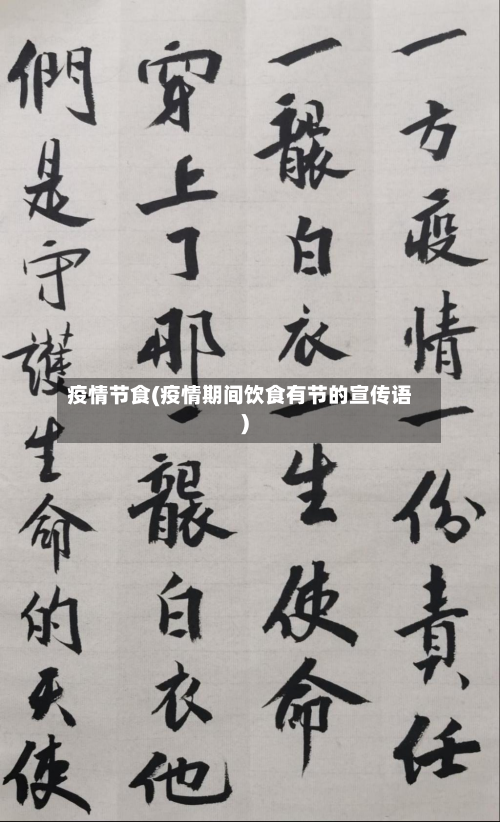 一方疫情一份責任
一襲白衣一生使命
穿上了那一襲白衣他
們是守護生命的天使
疫情节食(疫情期间饮食有节的宣传语
)